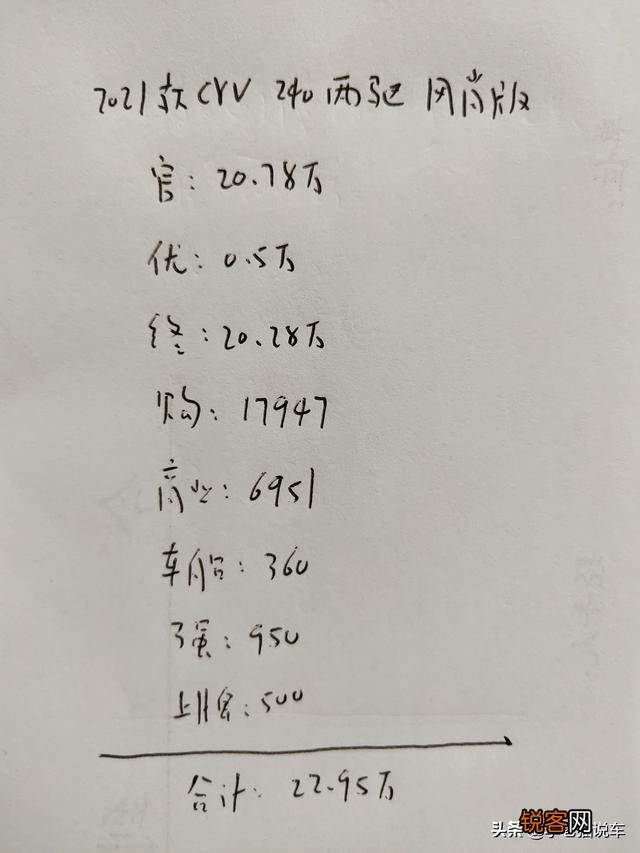 2021款CRV 240两驱 风尚版
官: 20.78万
优: 0.5万
终: 20.28万
购: 17947
商业: 6951
车船: 360
了强: 950
上牌: 500
合计: 22.95万
锐客网
头条 @
说车